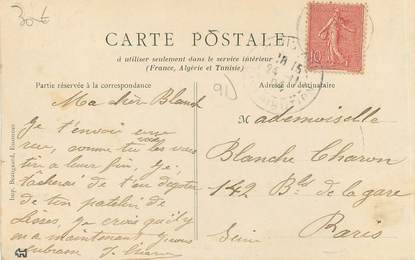 30€
CARTE POSTALE
à utiliser seulement dans le service intérieur
(France, Algérie et Tunisie)
Partie réservée à la correspondance
Adresse du destinataire
91
10
Ma chèr Blanch
Je t'envoi une
vue, comme tu les vois
tir a leur fin, Je
tâcherai de t'en
de ton patelin de
Lisses, Je crois qu'il y
en a maintenant Je vous
Mademoiselle
Blanche Charon
142 Bd de la gare
Paris
Seine
Imp. Bourgeaud, Essonnes